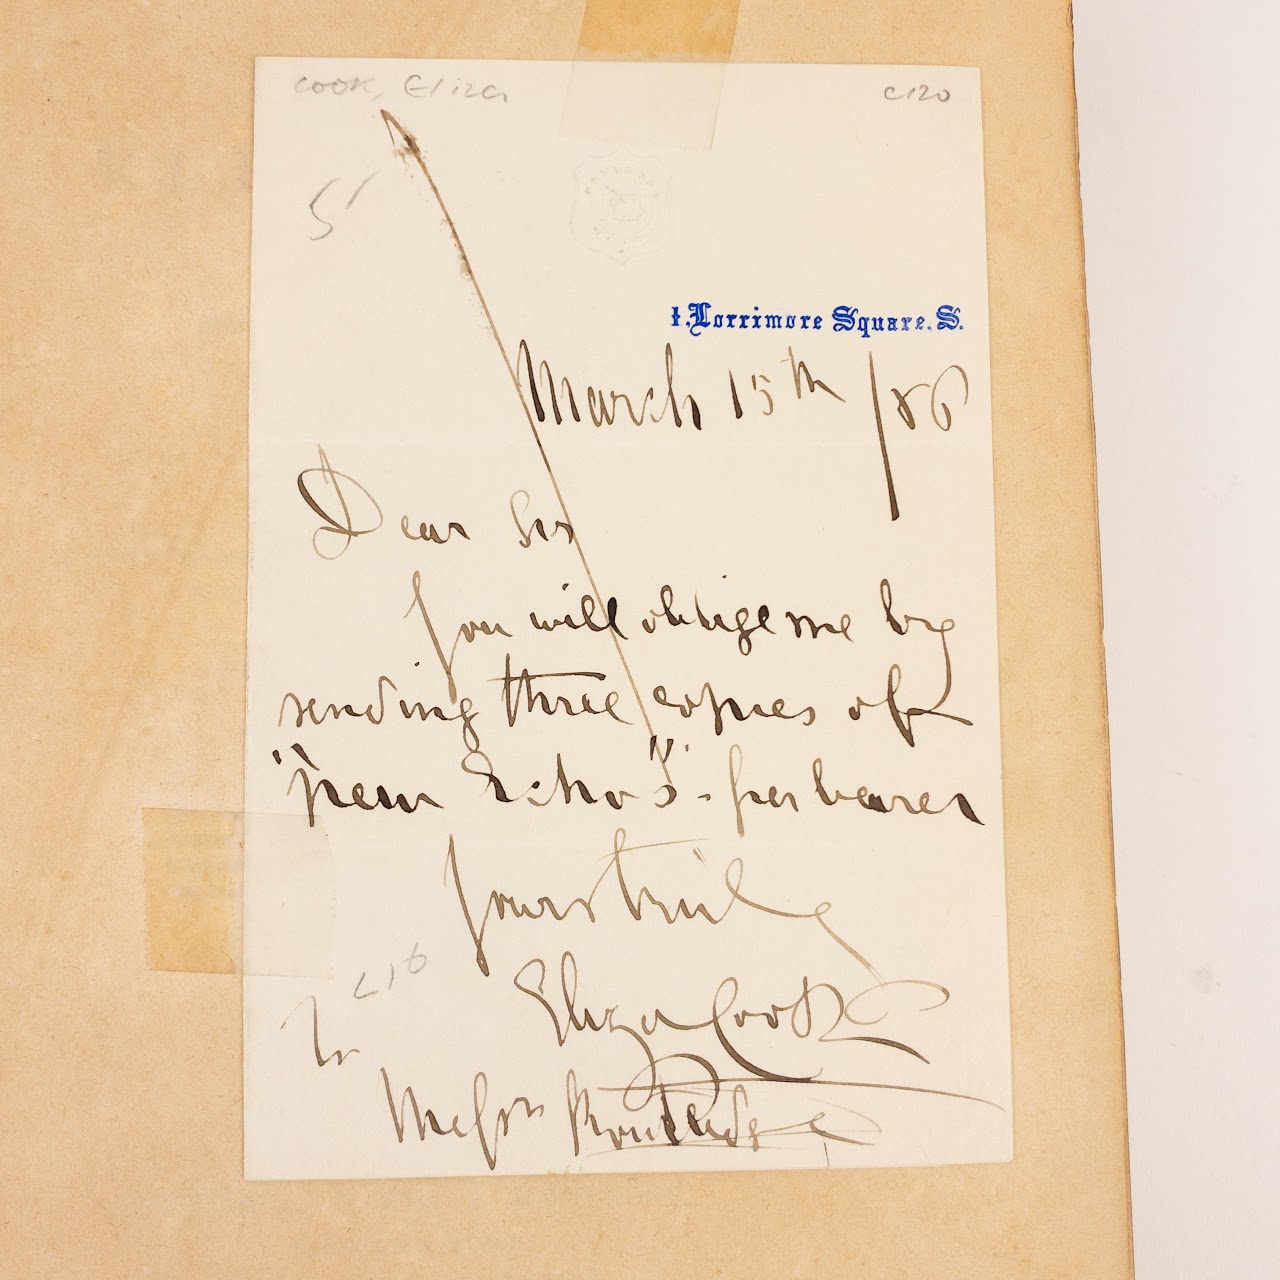 Cook, Eliza
C120
5/
1, Lorrimore Square. S.
March 15th /86
Dear Sir
You will oblige me by
sending three copies of
"New Echo's" - per bearer
Yours truly
Eliza Cook
C16
To
Messrs Routledge